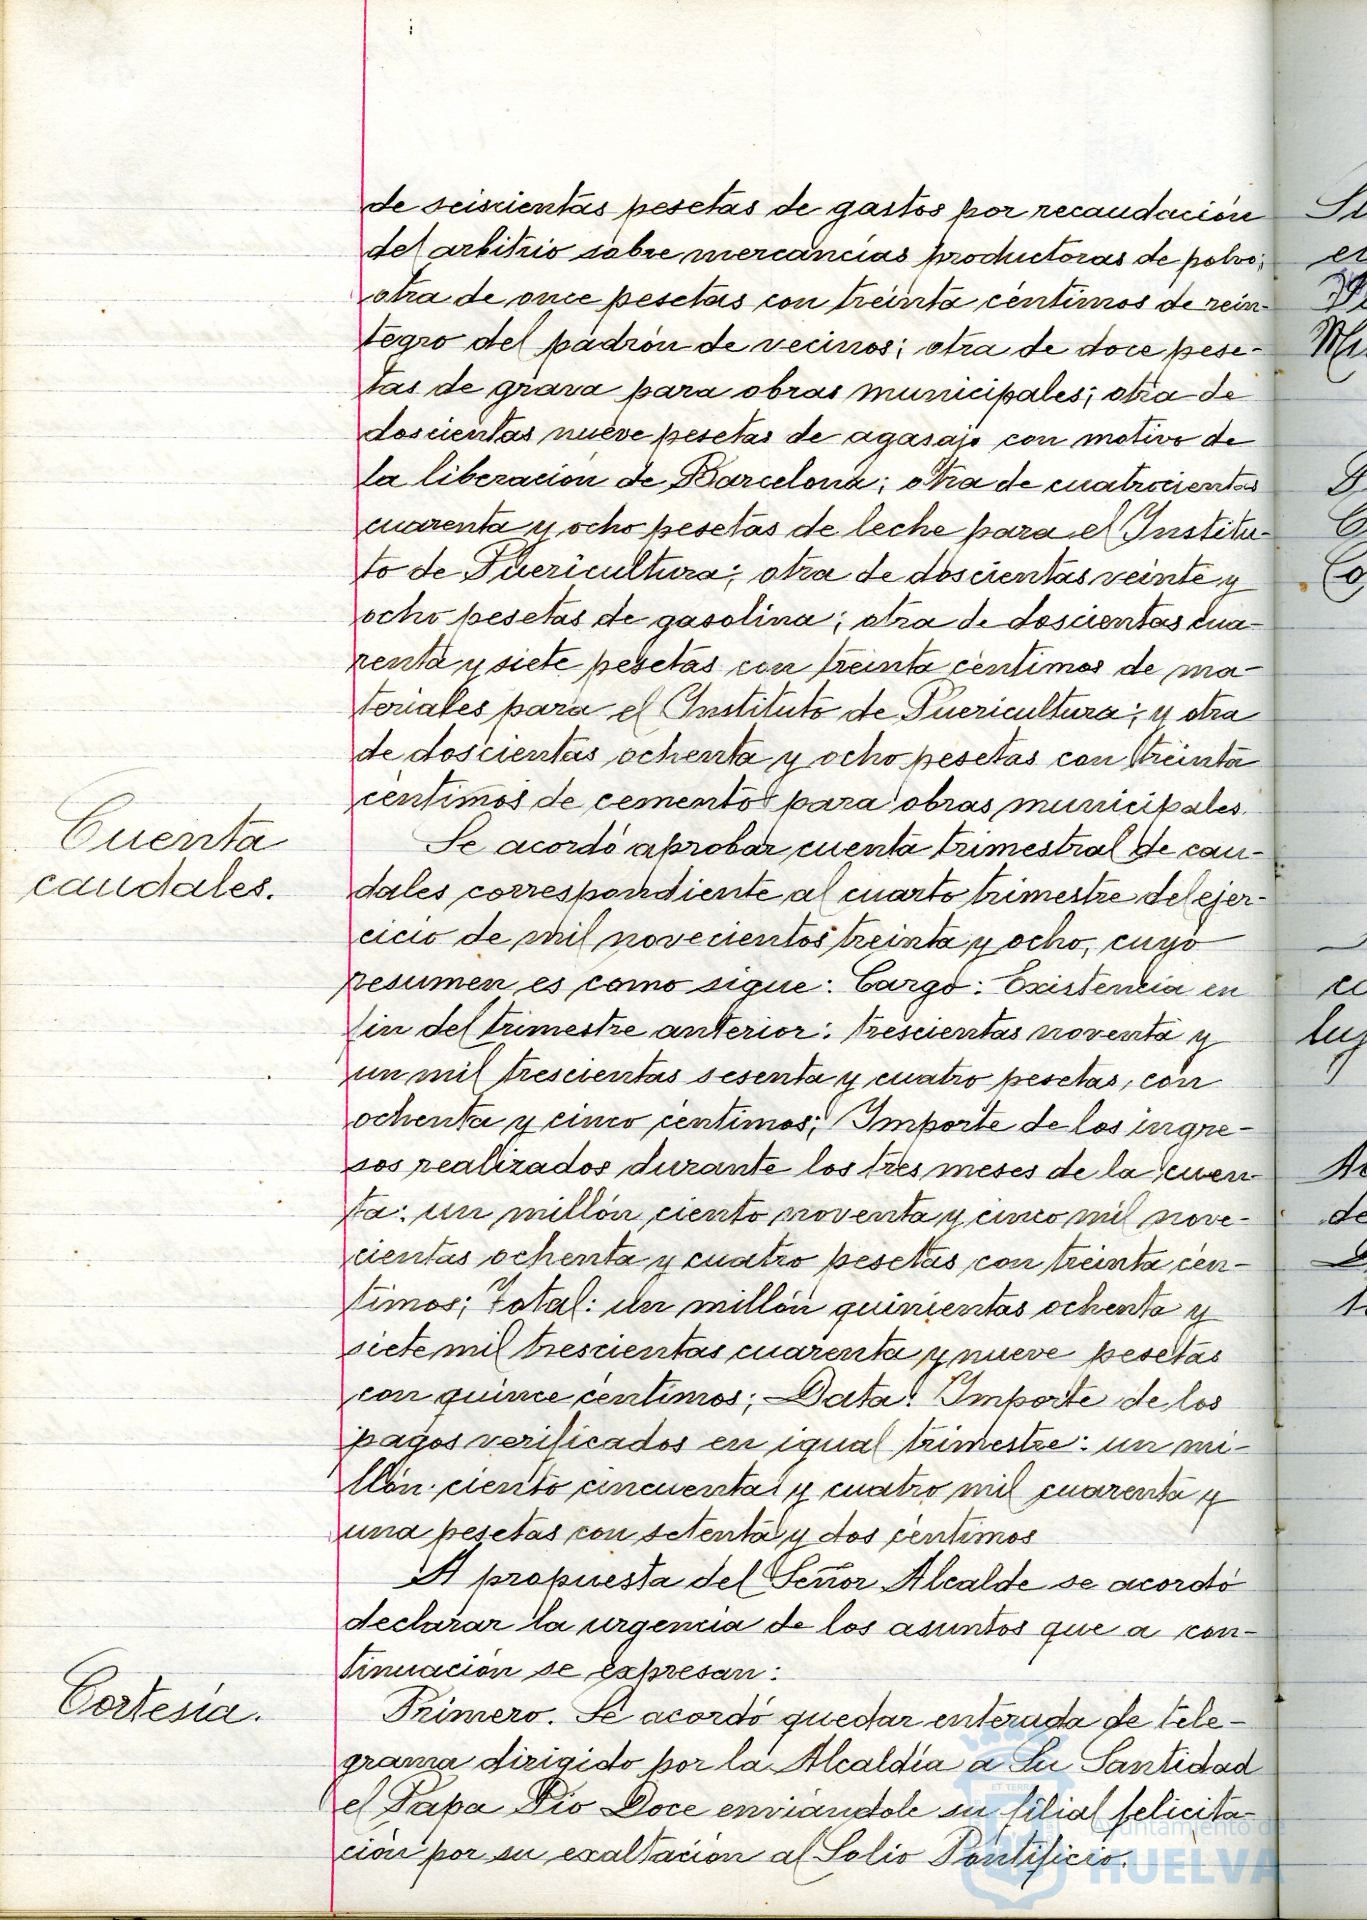 de seiscientas pesetas de gastos por recaudación
del arbitrio sobre mercancías productoras de polvo;
otra de once pesetas con treinta céntimos de rein-
tegro del padrón de vecinos; otra de doce pese-
tas de grava para obras municipales; otra de
doscientas nueve pesetas de agasajo con motivo de
la liberación de Barcelona; otra de cuatrocientas
cuarenta y ocho pesetas de leche para el Institu-
to de Puericultura; otra de doscientas veinte y
ocho pesetas de gasolina; otra de doscientas cua-
renta y siete pesetas con treinta céntimos de ma-
teriales para el Instituto de Puericultura; y otra
de doscientas ochenta y ocho pesetas con treinta
céntimos de cemento para obras municipales.
Cuenta
caudales.
Se acordó aprobar cuenta trimestral de cau-
dales correspondiente al cuarto trimestre del ejer-
cicio de mil novecientos treinta y ocho, cuyo
resumen es como sigue: Cargo: Existencia en
fin del trimestre anterior: trescientas noventa y
un mil trescientas sesenta y cuatro pesetas, con
ochenta y cinco céntimos; Importe de los ingre-
sos realizados durante los tres meses de la cuen-
ta: un millón ciento noventa y cinco mil nove-
cientas ochenta y cuatro pesetas con treinta cén-
timos; Total: un millón quinientas ochenta y
siete mil trescientas cuarenta y nueve pesetas
con quince céntimos; Data: Importe de los
pagos verificados en igual trimestre: un mi-
llón ciento cincuenta y cuatro mil cuarenta y
una pesetas con setenta y dos céntimos
A propuesta del Señor Alcalde se acordó
declarar la urgencia de los asuntos que a con-
tinuación se expresan:
Cortesía.
Primero. Se acordó quedar enterada de tele-
grama dirigido por la Alcaldía a Su Santidad
el Papa Pio Doce enviándole su filial felicita-
ción por su exaltación al Solio Pontificio.
Ayuntamiento de
HUELVA